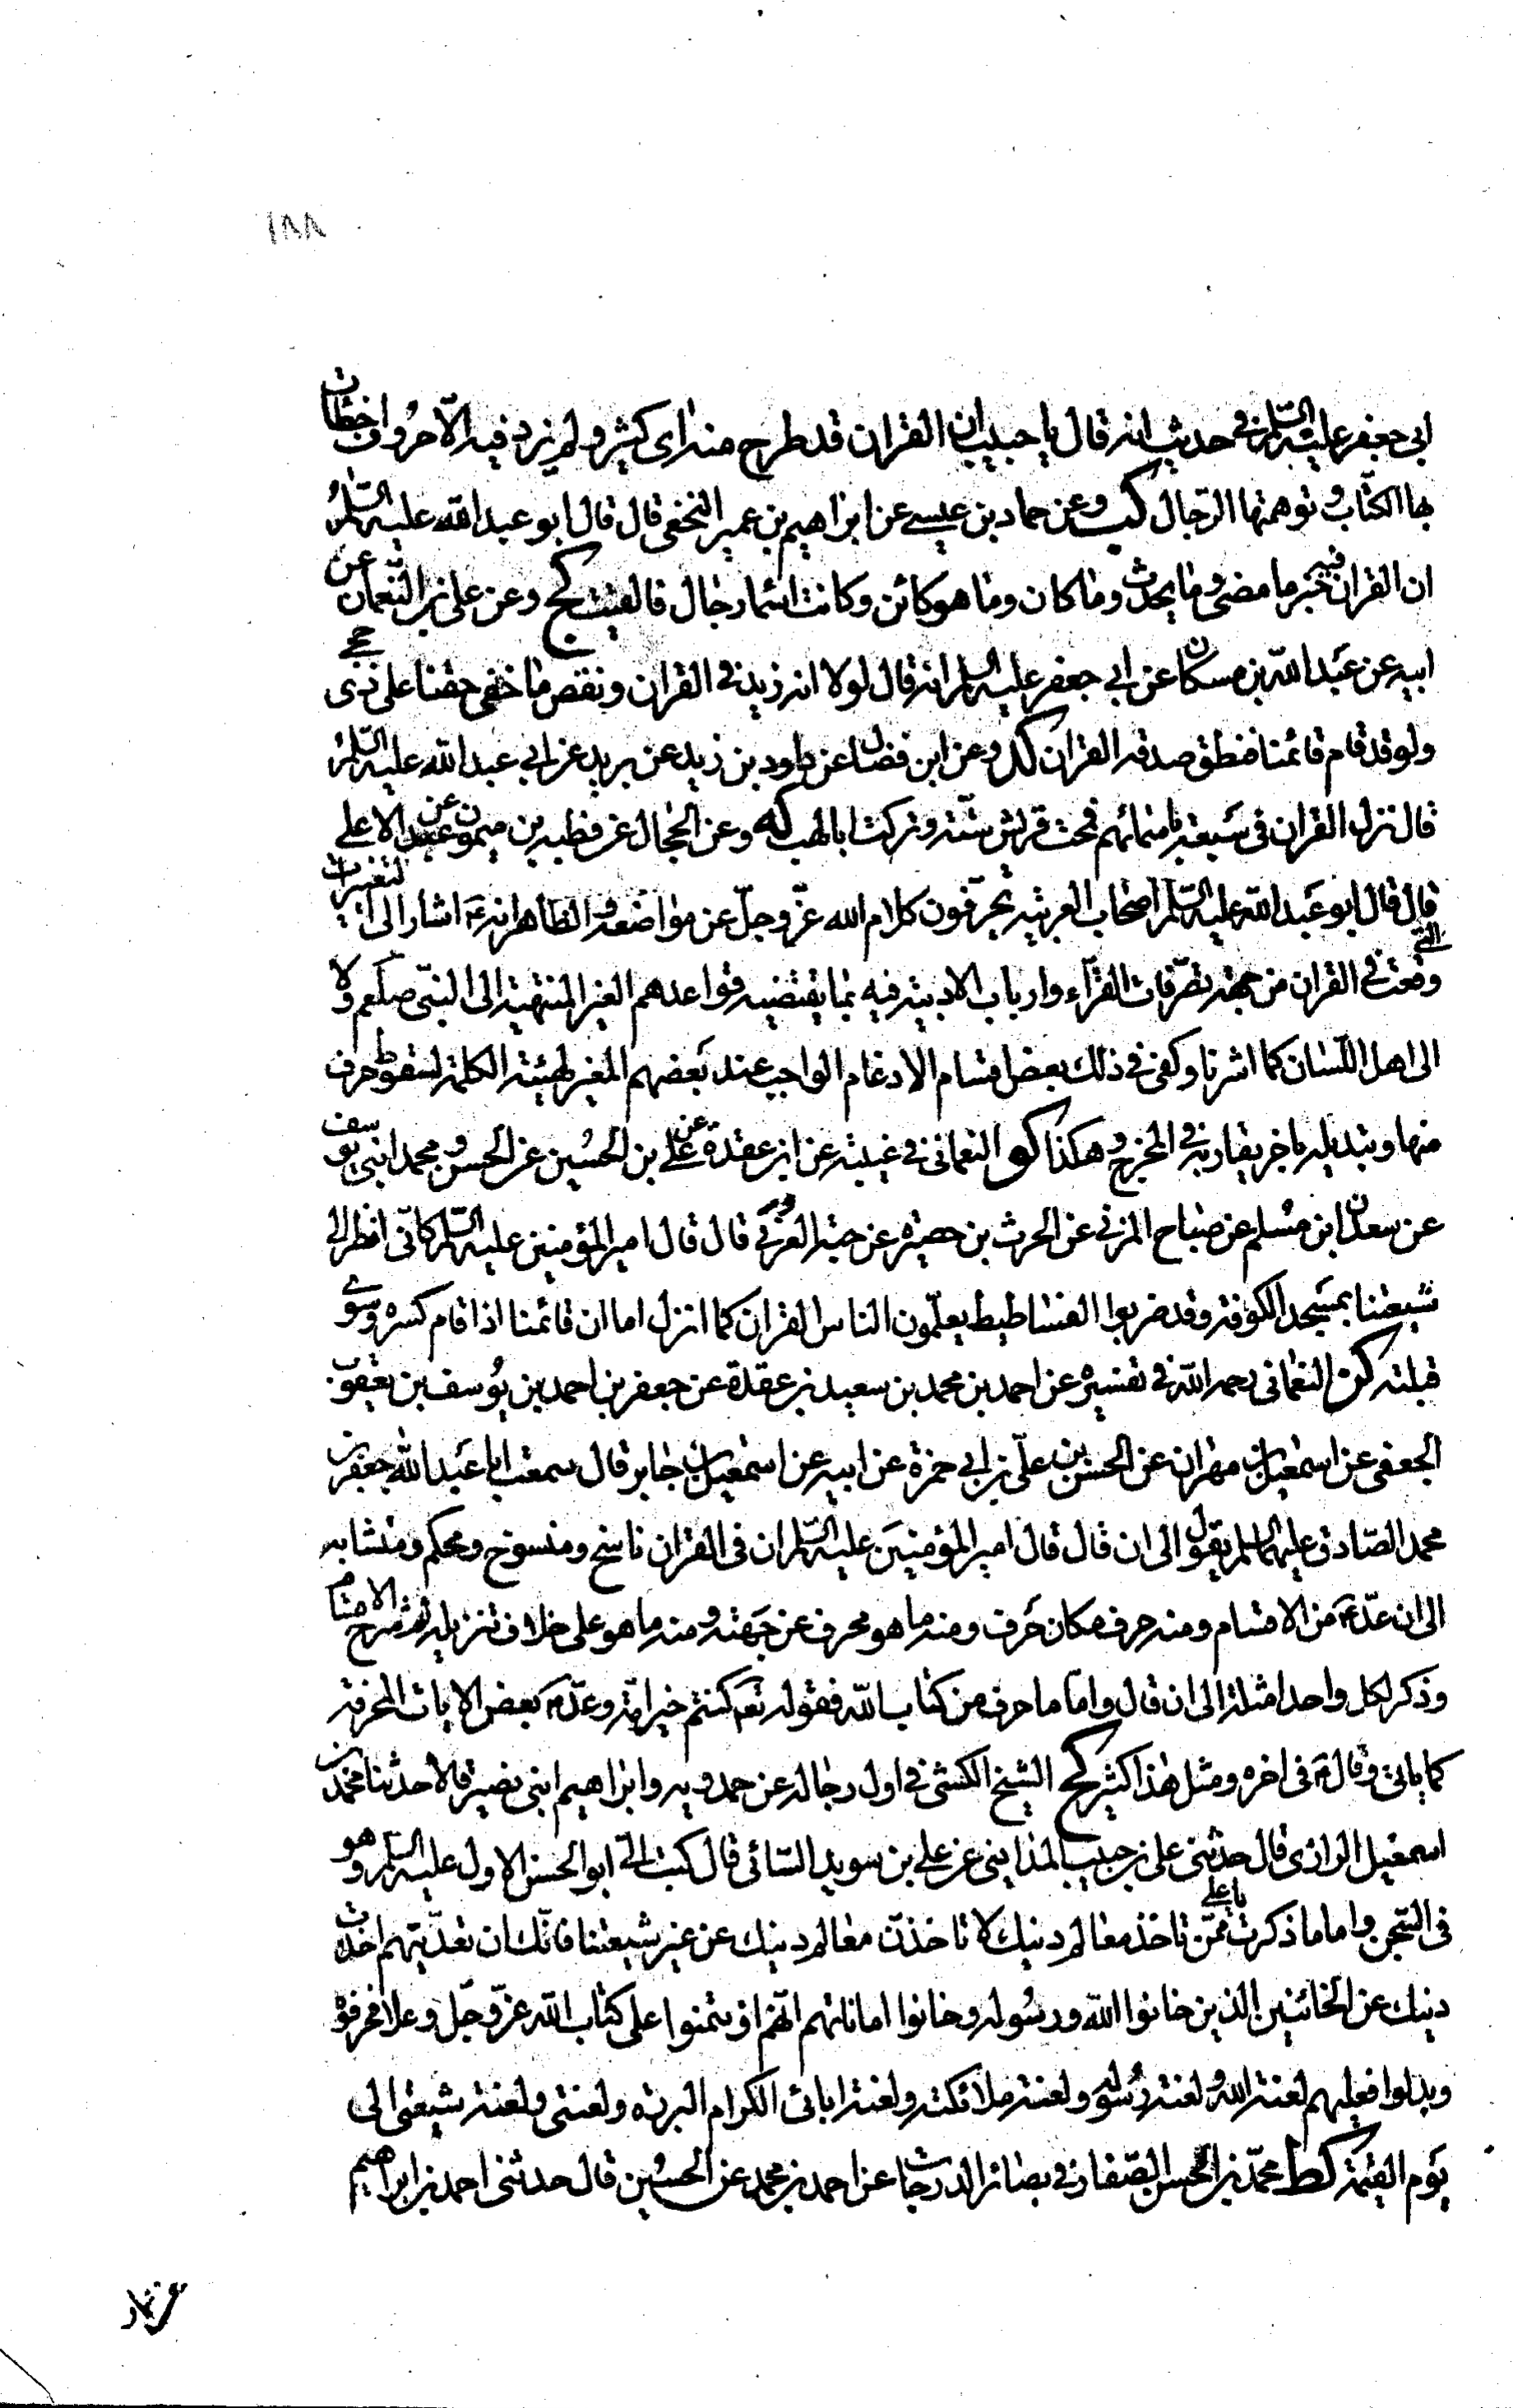 ١٨٨
ابى جعفر عليه السلم فى حديث انه قال يا حبيب ان القران قد طرح منه اى كثير ولم يزد فيه الا حروف اخطات
بها الكتاب وتوهمتها الرجال كب وعن حماد بن عيسى عن ابراهيم بن عمير النخعى قال قال ابو عبد الله عليه السلم
ان القران فيه خبر ما مضى وما يحدث وما كان وما هو كائن وكانت اسماء رجال فالقيت كج وعن على بن النعمان عن
ابيه عن عبد الله بن مسكان عن ابى جعفر عليه السلم انه قال لولا انه زيد فى القران ونقص ما خفى حقنا على ذى حجى
ولو قد قام قائمنا فنطق صدقه القران كد وعن ابن فضال عن داود بن زيد عن بريد عن ابى عبد الله عليه السلم
قال نزل القران فى سبعة باسمائهم فمحت قريش ستة وتركت ابا لهب كه وعن الحجال عن قطبه بن ميمون عن عبد الاعلى
قال قال ابو عبد الله عليه السلم اصحاب العربية يحرفون كلام الله عز وجل عن مواضعه والظاهر انه ع اشار الى التغييرات
التى وقعت فى القران من جهة تصرفات القراء وارباب الادبية فيه بما يقتضيه قواعدهم الغير المنتهية الى النبى صلعم ولا
الى اهل اللسان كما اشرنا وكفى فى ذلك بعض اقسام الادغام الواجب عند بعضهم المغير لهيئة الكلمة لسقوط حرف
منها وتبديله باخر يقاربه فى المخرج وهكذا كو النعمانى فى غيبته عن ابن عقدة عن على بن الحسين عن الحسن ومحمد ابنى يوسف
عن سعدان ابن مسلم عن صباح المزنى عن الحرث بن حصيرة عن حبة العرنى قال قال امير المؤمنين عليه السلم كانى انظر الى
شيعتنا بمسجد الكوفة وقد ضربوا الفساطيط يعلمون الناس القران كما انزل اما ان قائمنا اذا قام كسره وسوى
قبلته كز النعمانى رحمه الله فى تفسيره عن احمد بن محمد بن سعيد بن عقدة عن جعفر بن احمد بن يوسف بن يعقوب
الجعفى عن اسمعيل بن مهران عن الحسن بن على بن ابى حمزة عن ابيه عن اسمعيل بن جابر قال سمعت ابا عبد الله جعفر بن
محمد الصادق عليهما السلم يقول الى ان قال قال امير المؤمنين عليه السلم ان فى القران ناسخ ومنسوخ ومحكم ومتشابه
الى ان عد ع من الاقسام ومنه حرف مكان حرف ومنه ما هو محرف عن جهته ومنه ما هو على خلاف تنزيله ثم شرح الاقسام
وذكر لكل واحد امثلة الى ان قال واما ما حرف من كتاب الله فقوله تع كنتم خير امة وعد ع بعض الايات المحرفة
كما ياتى وقال ع فى اخره ومثل هذا كثير كح الشيخ الكشى فى اول رجاله عن حمدويه وابراهيم ابنى نصير قالا حدثنا محمد بن
اسمعيل الرازى قال حدثنى على بن حبيب المداينى عن على بن سويد السائى قال كتب الى ابو الحسن الاول عليه السلم وهو
فى السجن واما ما ذكرت يا على ممن تاخذ معالم دينك لا تاخذن معالم دينك عن غير شيعتنا فانك ان تعديتهم اخذت
دينك عن الخائنين الذين خانوا الله ورسوله وخانوا اماناتهم انهم اوتمنوا على كتاب الله عز وجل وعلا فحرفوه
وبدلوا فعليهم لعنة الله ولعنة رسوله ولعنة ملائكته ولعنة ابائى الكرام البررة ولعنتى ولعنة شيعتى الى
يوم القيمة كط محمد بن الحسن الصفار فى بصائر الدرجات عن احمد بن محمد عن الحسين قال حدثنى احمد بن ابراهيم